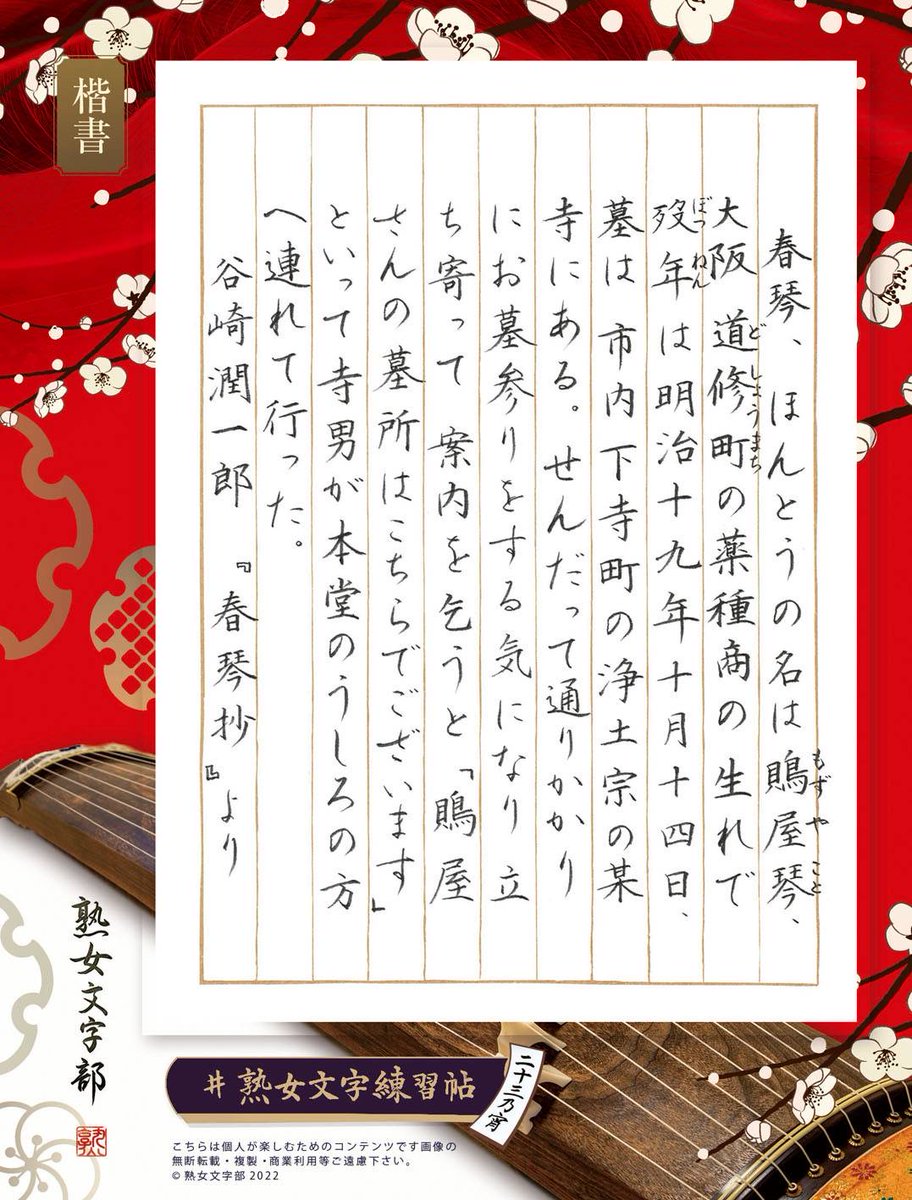 楷書
春琴、ほんとうの名は鵙屋琴、
もずや こと
大阪道修町の薬種商の生れで
どしょうまち
歿年は明治十九年十月十四日、
ぼつねん
墓は市内下寺町の浄土宗の某
寺にある。せんだって通りかかり
にお墓参りをする気になり立
ち寄って案内を乞うと「鵙屋
さんの墓所はこちらでございます」
といって寺男が本堂のうしろの方
へ連れて行った。
谷崎潤一郎『春琴抄』より
熟女文字部
熟
#熟女文字練習帖
二十三乃宵
こちらは個人が楽しむためのコンテンツです画像の
無断転載・複製・商業利用等ご遠慮下さい。
© 熟女文字部 2022